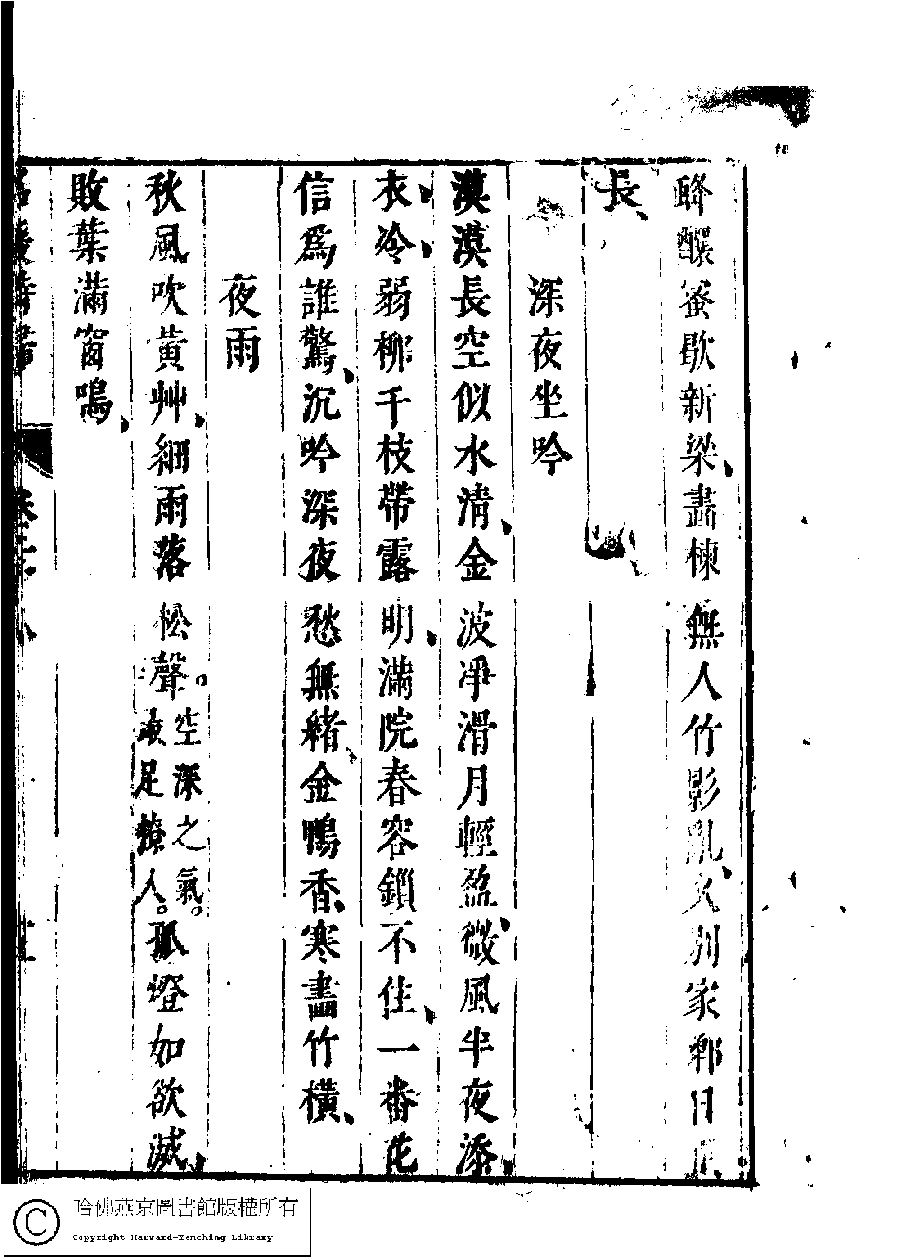 釀蜜歇新梁畵棟無人竹影亂久別家鄉日正
長
深夜坐吟
漠漠長空似水清金波凈滑月輕盈微風半夜添
衣冷弱柳千枝帶露明滿院春容鎖不住一番花
信爲誰驚沉吟深夜愁無緒金鴨香寒畵竹橫
夜雨
秋風吹黃艸細雨落松聲空深之氣
最足撩人孤燈如欲滅
敗葉滿窗鳴
哈佛燕京圖書館版權所有
Copyright Harvard-Yenching Library